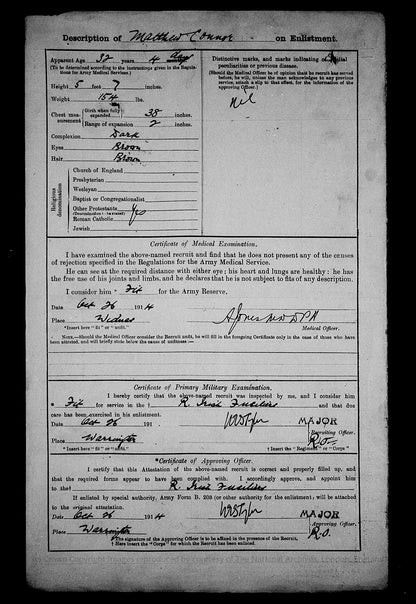 Description of Matthew Connor on Enlistment.
Apparent Age of 32 years 4 days
(To be determined according to the instructions given in the Regulations for Army Medical Services.)
Height 5 feet 7 inches.
Weight 154 lbs.
Chest measurement
Girth when fully expanded 38 inches
Range of expansion 2 inches.
Complexion Dark
Eyes Brown
Hair Brown
Religious denomination
Church of England
Presbyterian
Wesleyan
Baptist or Congregationalist
Other Protestants
(Denomination to be stated)
Roman Catholic Yes
Jewish
Distinctive marks, and marks indicating congenital
peculiarities or previous disease.
(Should the Medical Officer be of opinion that the recruit has served
before, he will, unless the man acknowledges to any previous
service, attach a slip to that effect, for the information of the
approving Officer.)
Nil
Certificate of Medical Examination.
I have examined the above-named recruit and find that he does not present any of the causes
of rejection specified in the Regulations for the Army Medical Service.
He can see at the required distance with either eye; his heart and lungs are healthy; he has
the free use of his joints and limbs, and he declares that he is not subject to fits of any description.
I consider him * Fit for the Army Reserve.
Date Oct 26 1914
Place Widnes
Medical Officer.
*Insert here "fit" or "unfit."
NOTE.—Should the Medical Officer consider the Recruit unfit, he will fill in the foregoing Certificate only in the case of those who have
been attested, and will briefly state below the cause of unfitness :—
Certificate of Primary Military Examination.
I hereby certify that the above-named recruit was inspected by me, and I consider him
* Fit for service in the † R. Irish Fusiliers and that due
care has been exercised in his enlistment.
Date Oct 26 191
Place Warrington
MAJOR
Recruiting Officer.
R.O.
*Insert here "fit" or "unfit."
† Insert the "Regiment" or "Corps."
*Certificate of Approving Officer.
I certify that this Attestation of the above-named recruit is correct and properly filled up, and
that the required forms appear to have been complied with. I accordingly approve, and appoint him
to the‡ R. Irish Fusiliers
If enlisted by special authority, Army Form B. 203 (or other authority for the enlistment) will be attached
to the original attestation.
Date Oct 26 1914
Place Warrington
MAJOR
Approving Officer.
R.O.
*The signature of the Approving Officer is to be affixed in the presence of the Recruit.
‡ Here insert the "Corps" for which the Recruit has been enlisted.